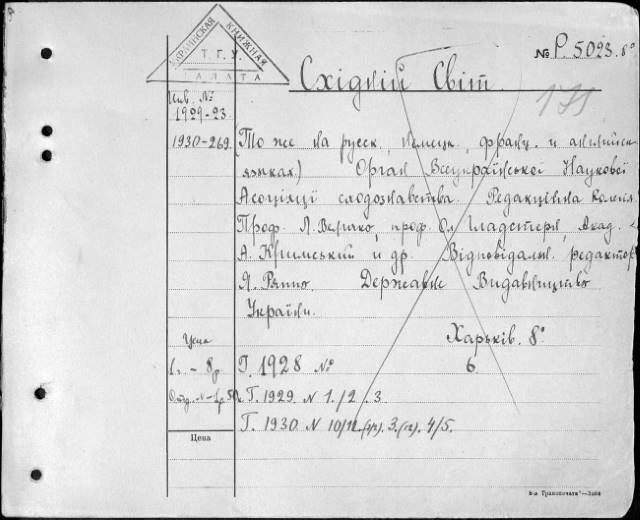 УКРАИНСКАЯ КНИЖНАЯ
Т. Г. У.
ПАЛАТА
№ Р. 5023. 8°
Східній Світ.
Инв. №
1929-23.
1930-269.
(То же на русск., немецк., франц. и английск.
языках.) Орган Всеукраїнської Наукової
Асоціяції сходознавства. Редакційна Колегія
Проф. Л. Величко, проф. Ол. Гладстерн, Акад.
А. Кримський й др. Відповідальн. редактор
Я. Ряппо. Державне Видавництво
України.
Харьків. 8°
Цена
1г. - 8р.
Г. 1928 № 6.
Г. 1929. N 1./2. 3.
Г. 1930. N 10/11. (1/2). 3. (12). 4/5.
Цена